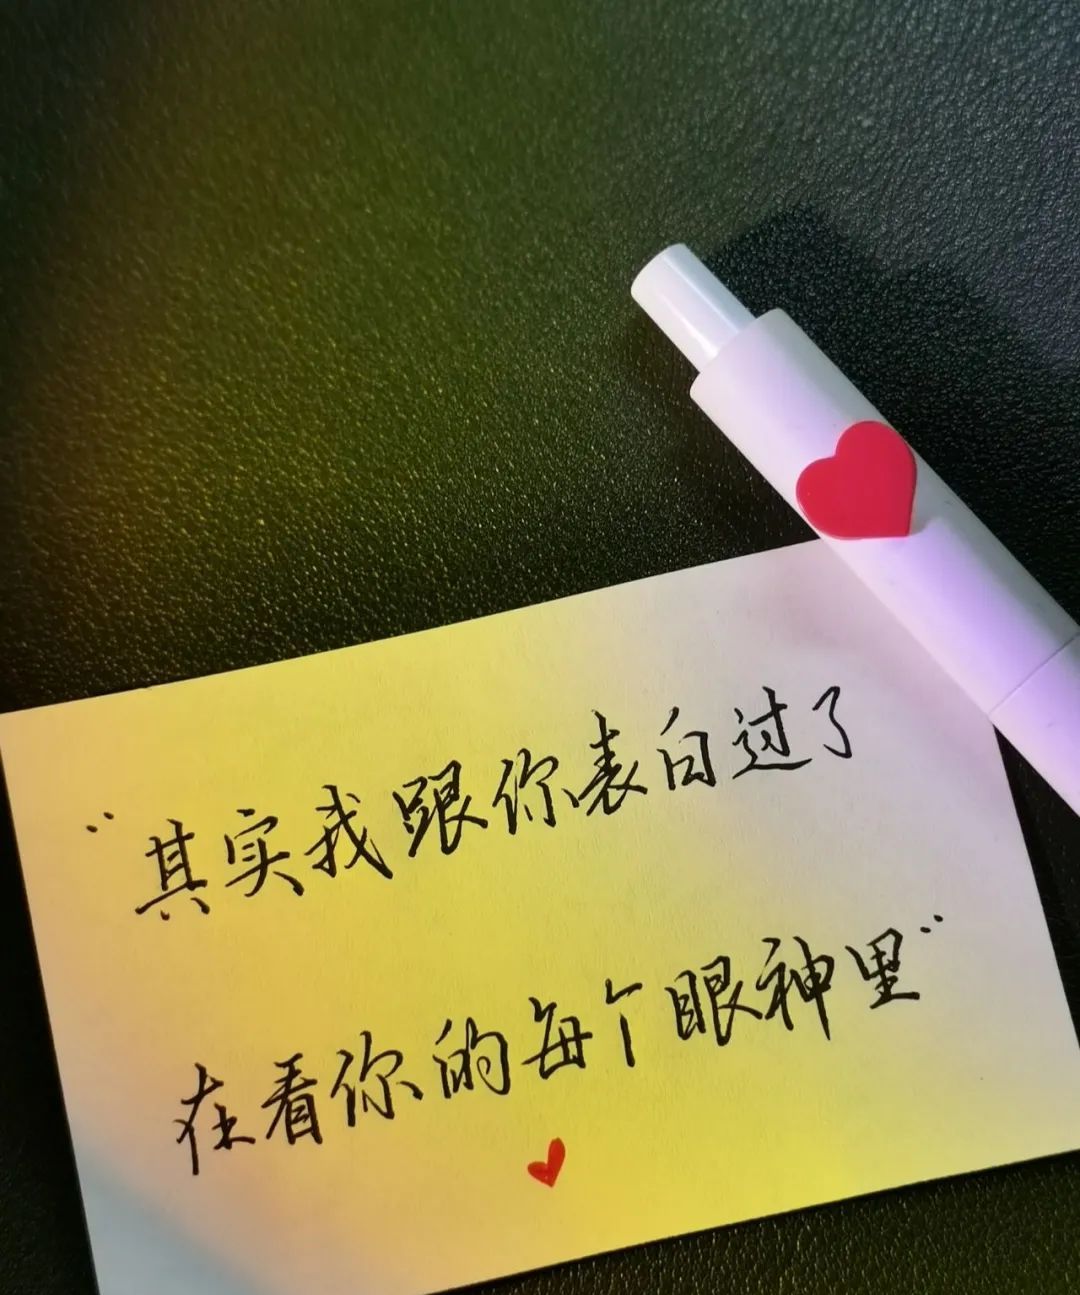 "其实我跟你表白过了
在看你的每个眼神里"